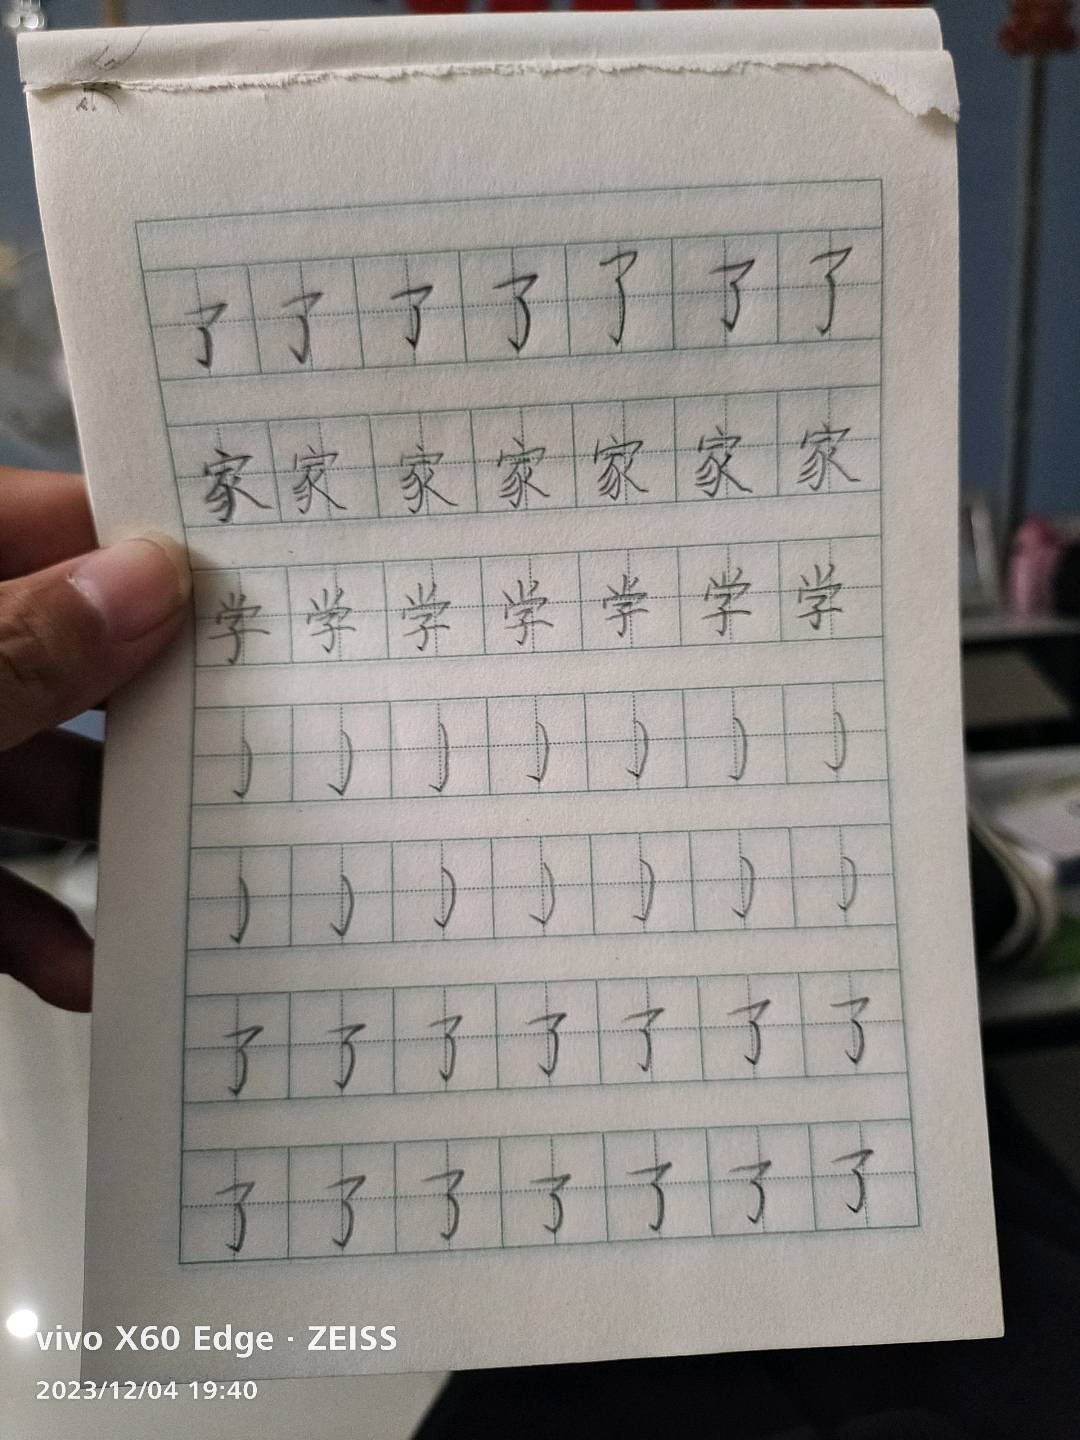 了了了了了了了
家家家家家家家
学学学学学学学
了了了了了了了
了了了了了了了
vivo X60 Edge · ZEISS
2023/12/04 19:40